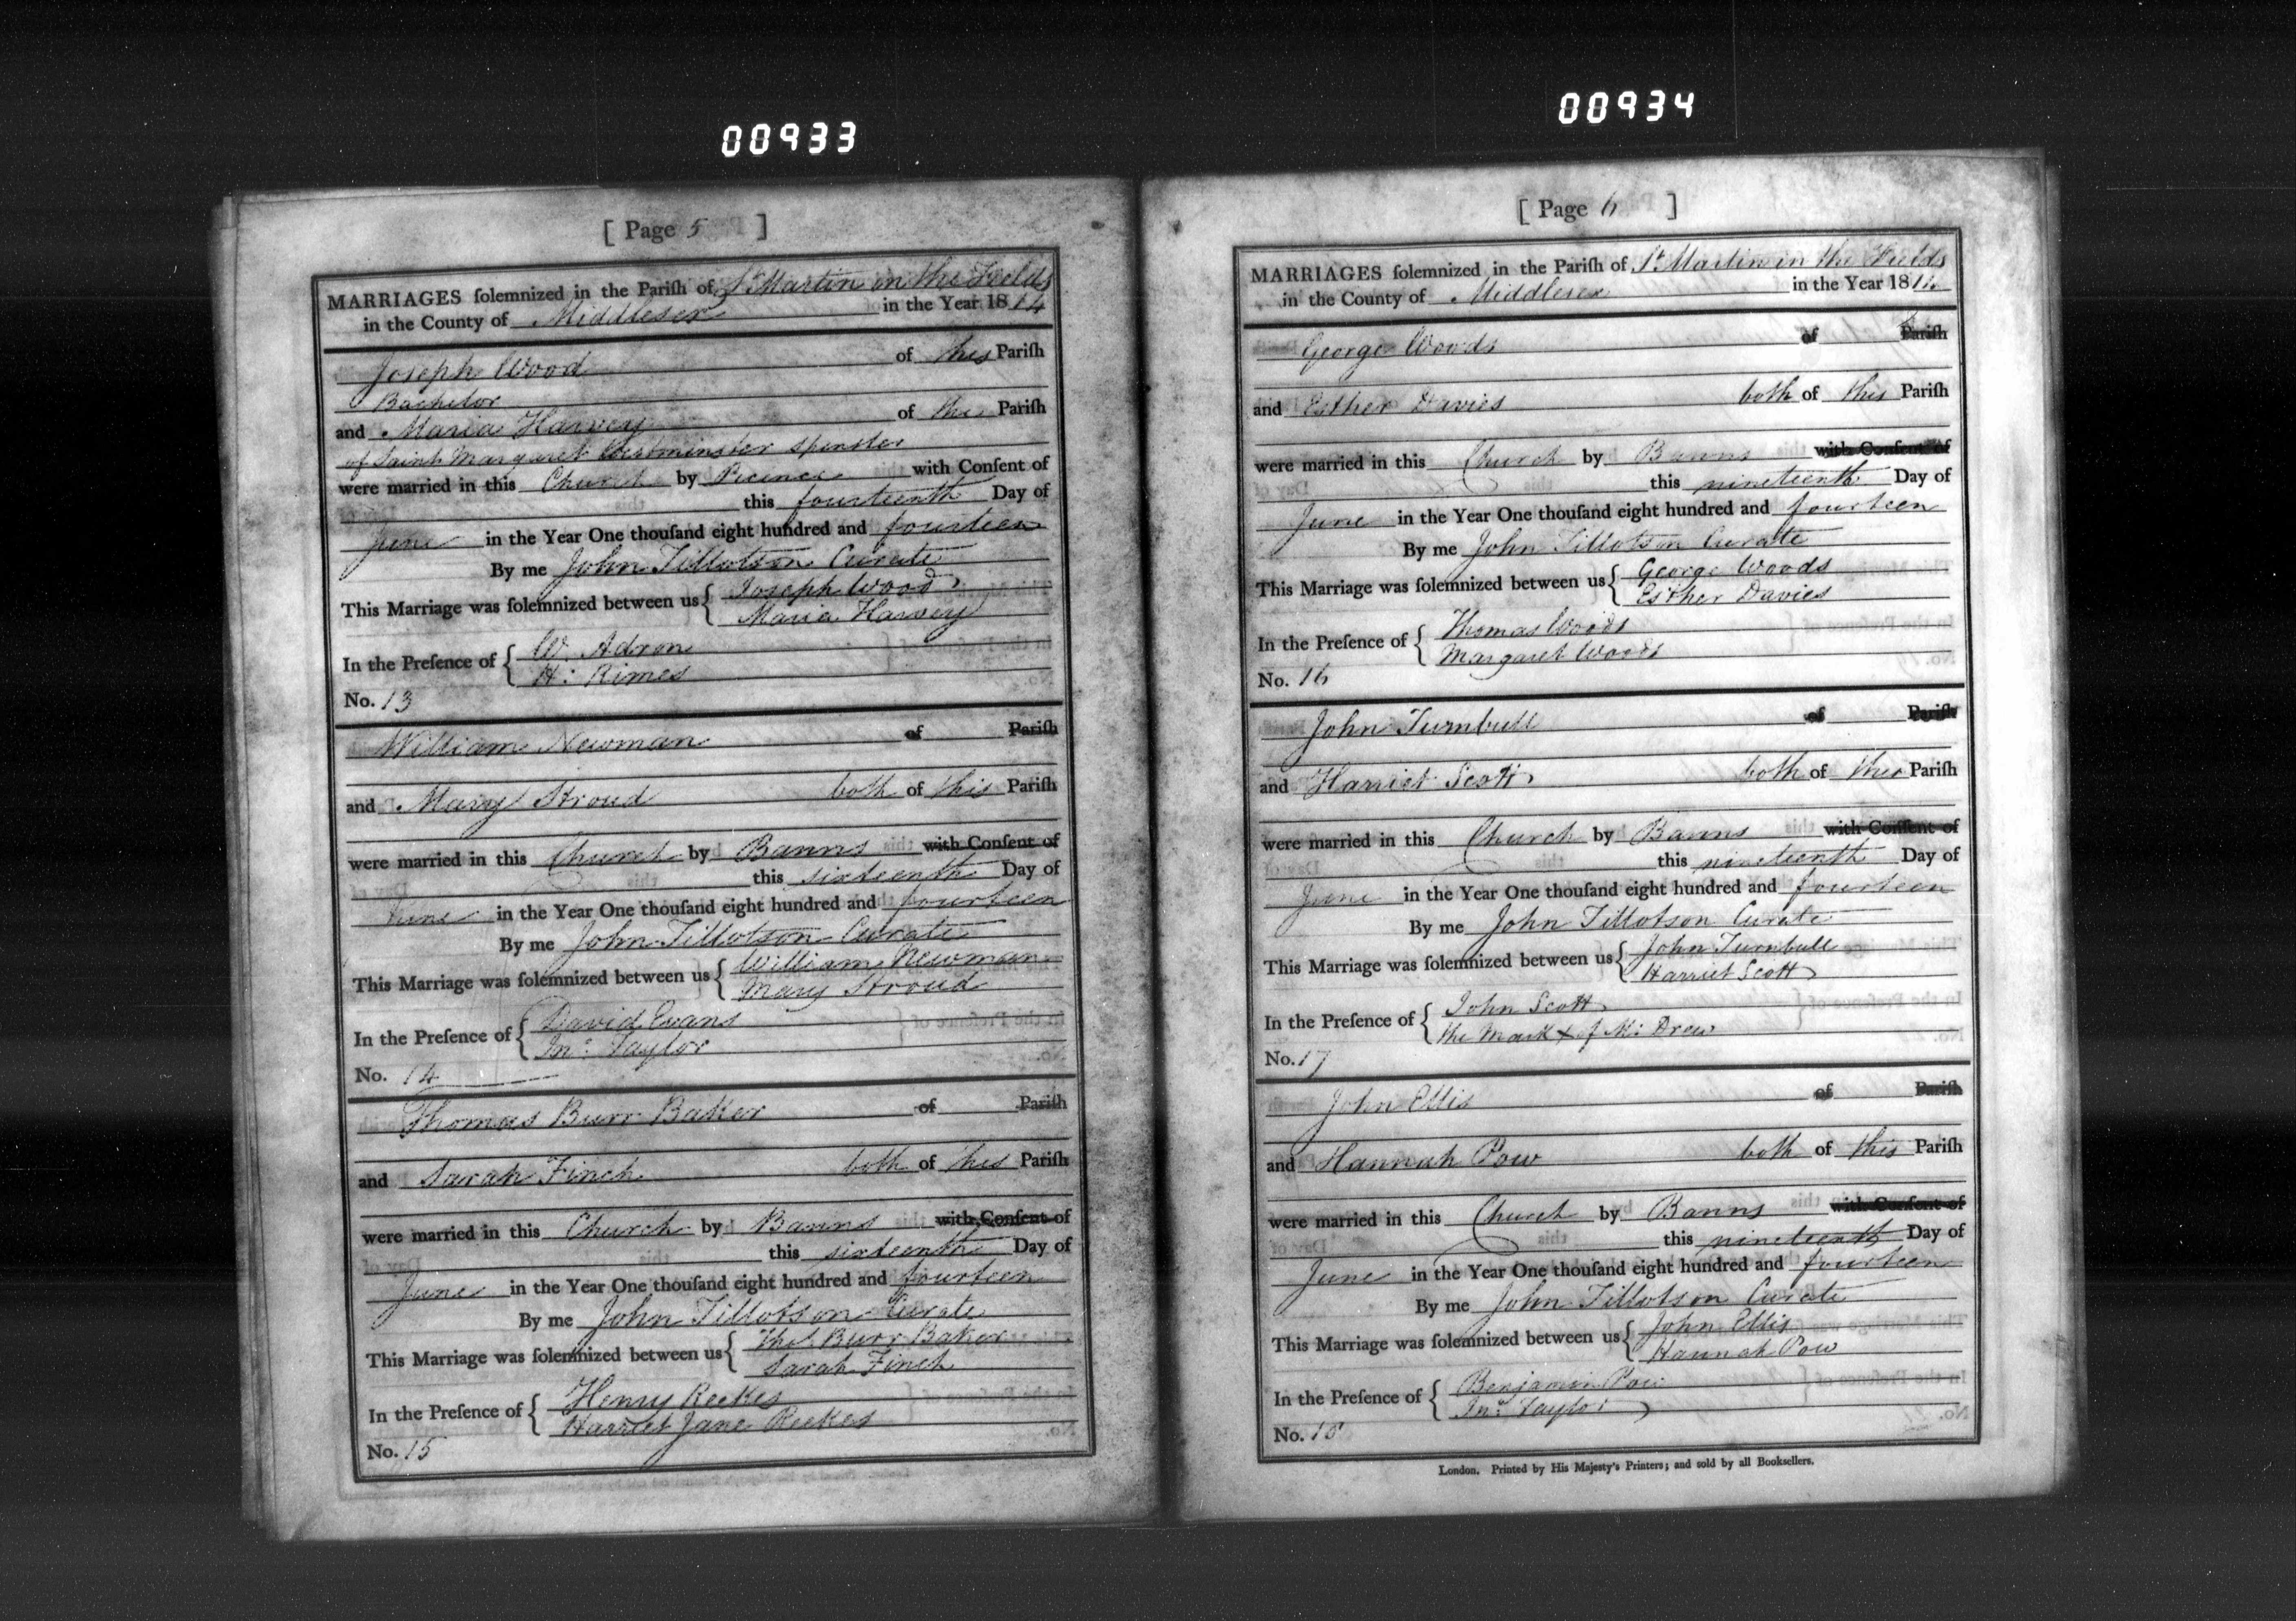 00933
[ Page 5 ]
MARRIAGES ſolemnized in the Pariſh of St Martin in the Fields
in the County of Middlesex in the Year 1814
Joseph Wood of this Pariſh
Bachelor
and Maria Harvey of the Pariſh
of Saint Margaret Westminster spinster
were married in this Church by Licence with Conſent of
this fourteenth Day of
June in the Year One thouſand eight hundred and fourteen
By me John Tillotson Curate
This Marriage was ſolemnized between us { Joseph Wood
Maria Harvey
In the Preſence of { W. Adron
H: Rimes
No. 13
William Newman of Pariſh
and Mary Stroud both of this Pariſh
were married in this Church by Banns with Conſent of
this sixteenth Day of
June in the Year One thouſand eight hundred and fourteen
By me John Tillotson Curate
This Marriage was ſolemnized between us { William Newman
Mary Stroud
In the Preſence of { David Evans
Jno: Taylor
No. 14
Thomas Burr Baker of Pariſh
and Sarah Finch both of this Pariſh
were married in this Church by Banns with Conſent of
this sixteenth Day of
June in the Year One thouſand eight hundred and fourteen
By me John Tillotson Curate
This Marriage was ſolemnized between us { Thos Burr Baker
Sarah Finch
In the Preſence of { Henry Reekes
Harriet Jane Reekes
No. 15
00934
[ Page 6 ]
MARRIAGES ſolemnized in the Pariſh of St Martin in the Fields
in the County of Middlesex in the Year 1814
George Woods of Pariſh
and Esther Davies both of this Pariſh
were married in this Church by Banns with Conſent of
this nineteenth Day of
June in the Year One thouſand eight hundred and fourteen
By me John Tillotson Curate
This Marriage was ſolemnized between us { George Woods
Esther Davies
In the Preſence of { Thomas Woods
Margaret Woods
No. 16
John Turnbull of Pariſh
and Harriet Scott both of this Pariſh
were married in this Church by Banns with Conſent of
this nineteenth Day of
June in the Year One thouſand eight hundred and fourteen
By me John Tillotson Curate
This Marriage was ſolemnized between us { John Turnbull
Harriet Scott
In the Preſence of { John Scott
the Mark X of M: Drew
No. 17
John Ellis of Pariſh
and Hannah Pow both of this Pariſh
were married in this Church by Banns with Conſent of
this nineteenth Day of
June in the Year One thouſand eight hundred and fourteen
By me John Tillotson Curate
This Marriage was ſolemnized between us { John Ellis
Hannah Pow
In the Preſence of { Benjamin Pow
Jno: Taylor
No. 18
London. Printed by His Majesty's Printers; and sold by all Booksellers.